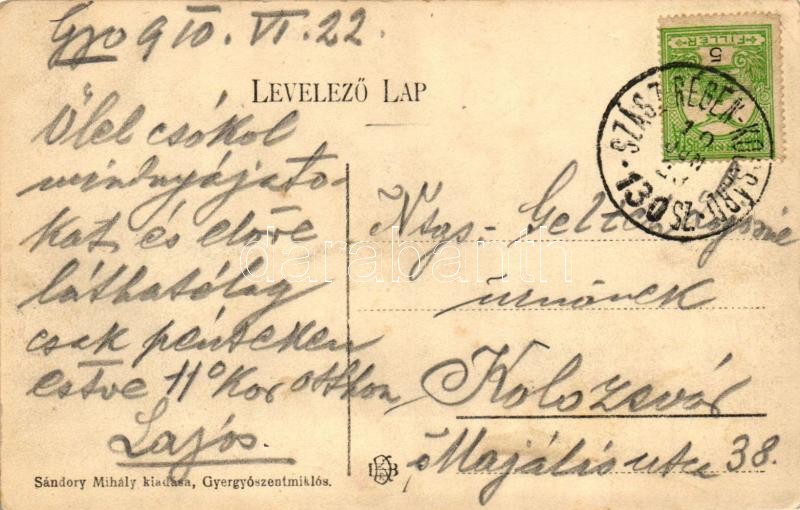 Gyo 910. VI. 22.
LEVELEZŐ LAP
FILLÉR
5
SZÁSZ RÉGEN-KOCSÁRD
130 SZ
Ölel csókol
mindnyájato-
kat, és előre
láthatólag
csak pénteken
estve 11° kor otthon
Lajos.
Ntgs-
úrnőnek
Kolozsvár
Majális utca 38.
darabanth
Sándory Mihály kiadása, Gyergyószentmiklós.